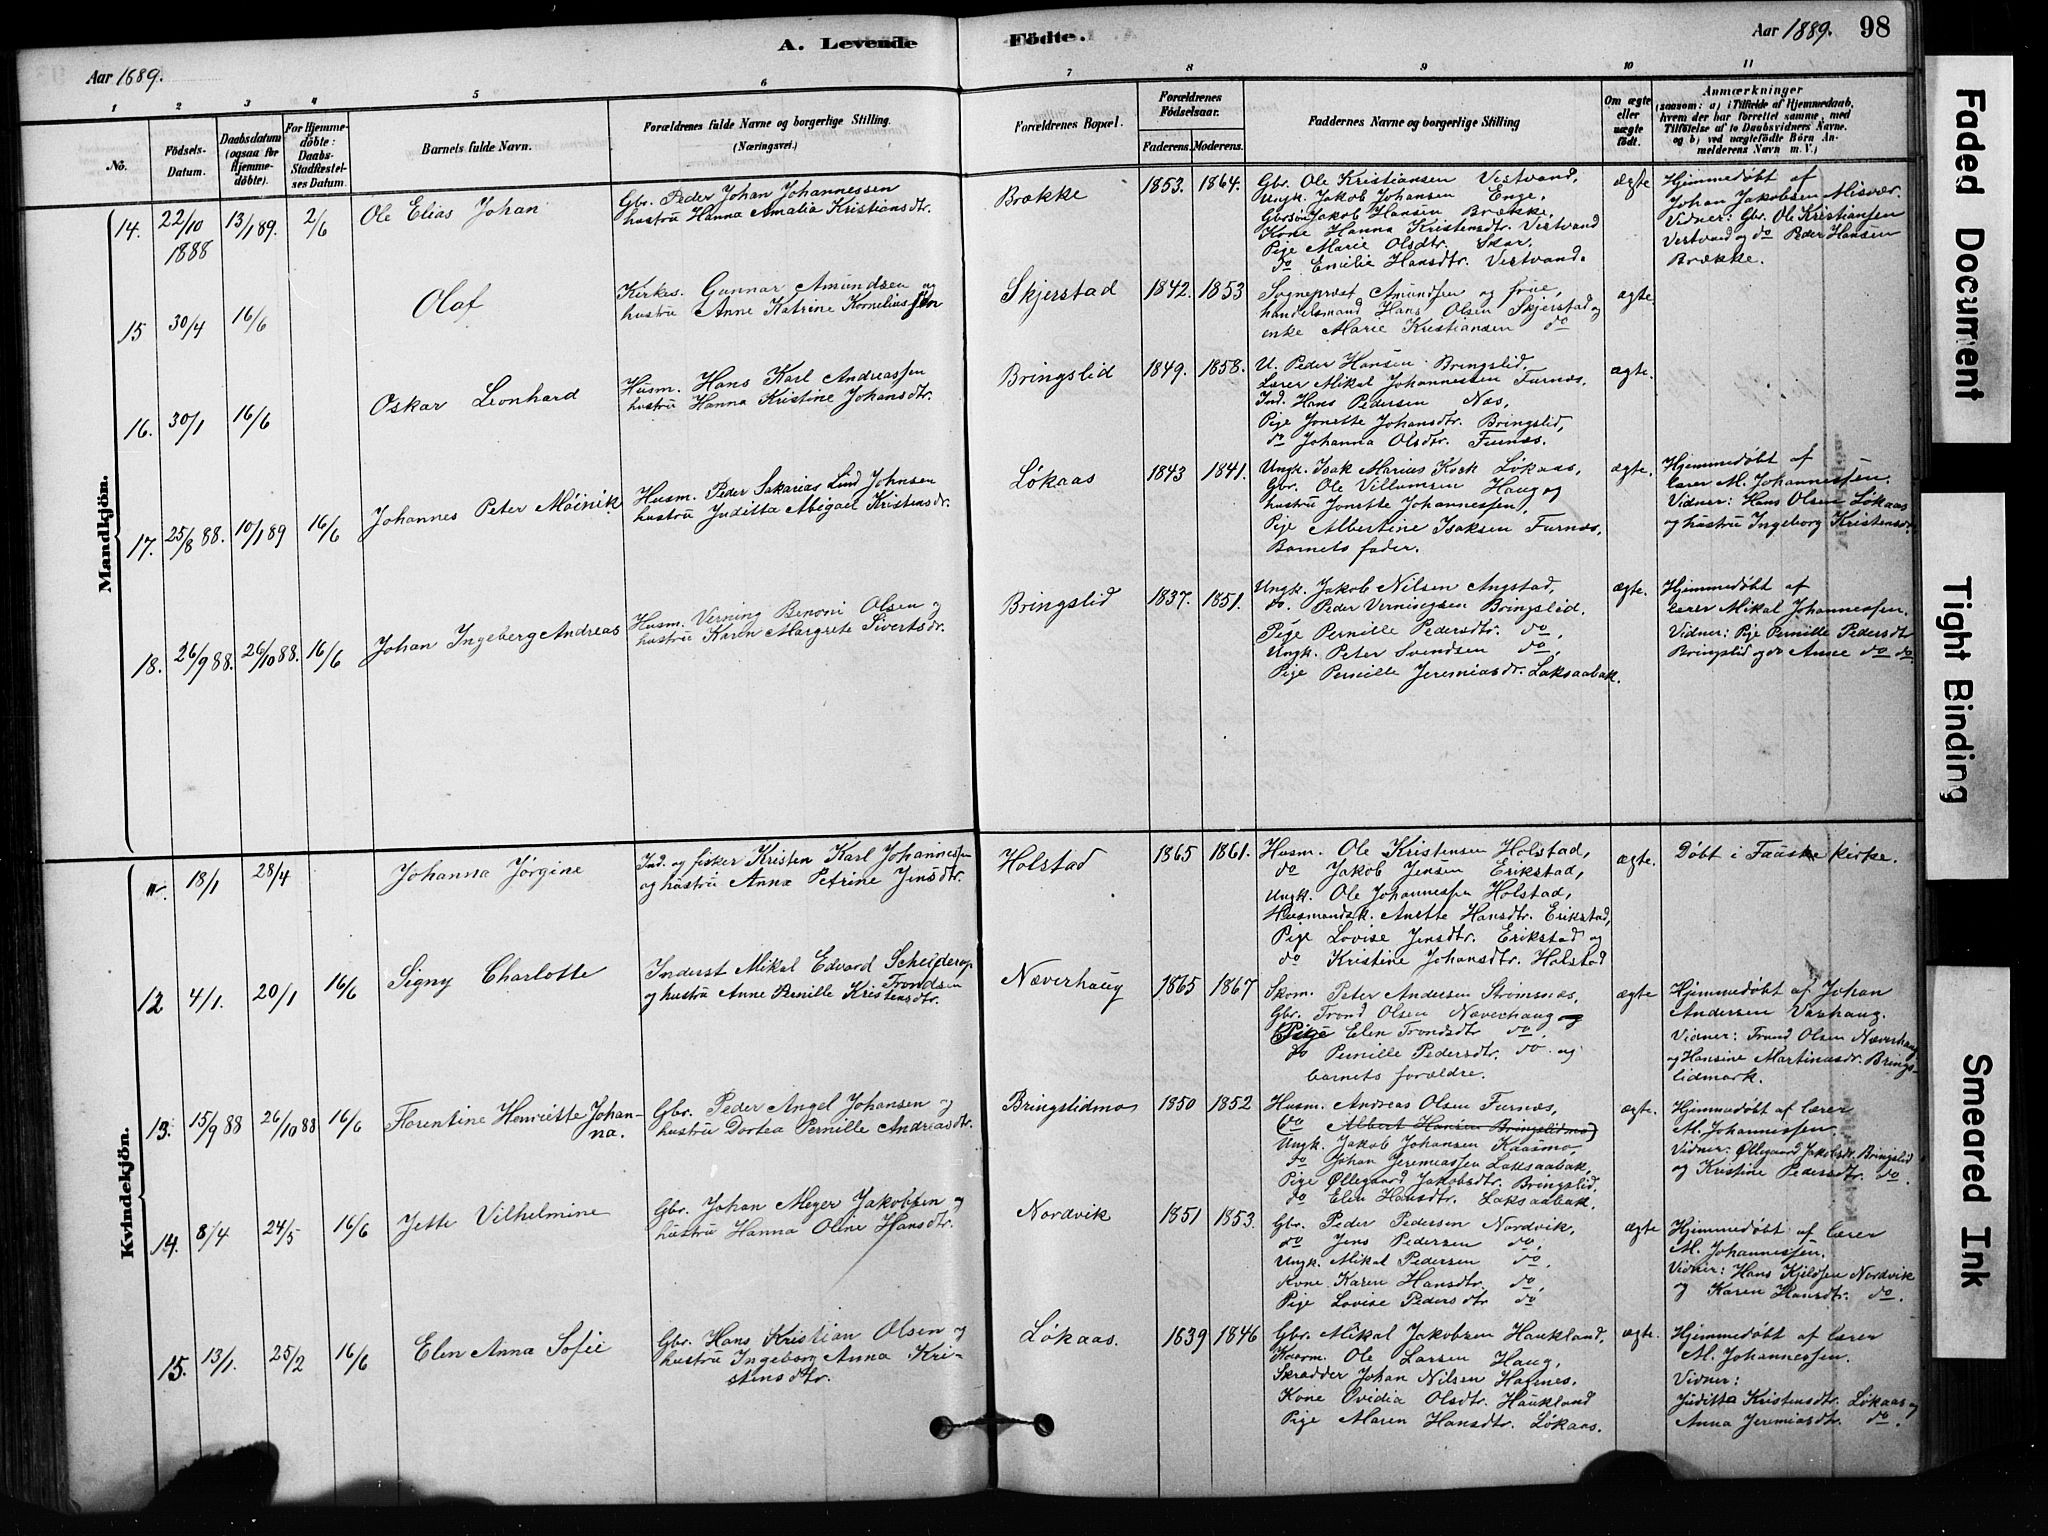 A. Levende Födte.
Aar 1889.
Aar 1889. 98
1 2 3 4 5 6 7 8 9 10 11
No.
Födsels-Datum.
Daabsdatum (ogsaa for Hjemmedöbte).
For Hjemmedöbte: Daabs-Stadfæstelses Datum.
Barnets fulde Navn.
Forældrenes fulde Navne og borgerlige Stilling.
(Næringsvei.)
Forældrenes Bopæl.
Forældrenes Födselsaar.
Faderens. Moderens.
Faddernes Navne og borgerlige Stilling
Om ægte eller uægte födt.
Anmærkninger
(saasom: a) i Tilfælde af Hjemmedaab, hvem der har forrettet samme, med Tilföielse af to Daabsvidners Navne. og b) ved uægtefödte Börn Anmelderens Navn m. V.)
Mandkjön.
14. 22/10 1888 13/1 89. 2/6 Ole Elias Johan
Gbr. Peder Johan Johannessen
hustru Hanna Amalia Kristiansdtr.
Brække 1853. 1864.
Gbr. Ole Kristiansen Vestvand,
Ungk. Jakob Johansen Enge,
Gbrsøn Jakob Hansen Brække,
Kone Hanna Kristensdtr. Vestvand
Pige Marie Olsdtr. Skar.
do Emilie Hansdtr. Vestvand.
ægte
Hjemmedøbt af
Johan Jakobsen Misvær.
Vidner: Gbr. Ole Kristiansen
Vestvand og do Peder Hansen
Brække.
15 30/4 16/6 Olaf
Kirkes. Gunnar Amundsen og
hustru Anne Katrine Kornelius sen
Skjerstad 1842. 1853
Sogneprest Amundsen og frue,
handelsmand Hans Olsen Skjerstad og
enke Marie Kristiansen do
ægte.
16. 30/1 16/6 Oskar Leonhard
Husm. Hans Karl Andreassen
hustru Hanna Kristine Johansdtr.
Bringslid 1849. 1858.
U. Peder Hansen Bringslid,
Lærer Mikal Johannessen Furnæs,
Ind. Hans Pedersen Næs,
Pige Jonette Johansdtr. Bringslid,
do Johanna Olsdtr. Furnæs.
ægte.
17. 25/8 88. 10/1 89 16/6 Johannes Peter Møinik
Husm. Peder Sakarias Lind Johnsen
hustru Juditta Abigael Kristensdr.
Løkaas 1843 1841.
Ungk. Isak Marius Kock Løkaas,
Gbr. Ole Villumsen Haug og
hustru Jonette Johannessen,
Pige Albertine Isaksen Furnæs,
Barnets fader.
ægte.
Hjemmedøbt af
lærer M. Johannessen.
Vidner: Hans Olsen Løkaas
og hustru Ingeborg Kristensdr.
18. 26/9 88. 26/10 88. 16/6 Johan Ingeberg Andreas
Husm. Verning Benoni Olsen og
hustru Karen Margrete Sivertsdr.
Bringslid 1837. 1851.
Ungk. Jakob Nilsen Angstad,
do. Peder Verningsen Bringslid,
Pige Pernille Pedersdtr. do,
Ungk. Peter Svendsen do,
Pige Pernille Jeremiasdr. Laksaabak.
ægte.
Hjemmedøbt af
lærer Mikal Johannessen.
Vidner: Pige Pernille Pedersdtr
Bringslid og do Anne do do
Kvindekjön.
11. 18/1 28/4 Johanna Jørgine
Ind. og fisker Kristen Karl Johannessen
og hustru Anna Petrine Jensdtr.
Holstad 1865 1861.
Husm. Ole Kristensen Holstad,
do Jakob Jensen Erikstad,
Ungk. Ole Johannessen Holstad,
Husmandsk. Anette Hansdtr. Erikstad,
Pige Lovise Jensdtr. Erikstad og
do Kristine Johansdtr. Holstad
ægte.
Døbt i Fauske kirke.
12 4/1. 20/1 16/6 Signy Charlotte
Inderst Mikal Edvard Schelderup
Trondsen
og hustru Anne Pernille Kristensdtr.
Næverhaug 1865 1867
Skom. Peter Andersen Strømsnæs,
Gbr. Trond Olsen Næverhaug og
Pige Elen Trondsdtr do,
do Pernille Pedersdtr. do og
barnets forældre.
ægte
Hjemmedøbt af Johan
Andersen Vashaug.
Vidner: Trond Olsen Næverhaug
og Hansine Martinusdr. Brings-
lidmark.
13. 15/9 88 26/10 88 16/6 Florentine Henriette Johan-
na.
Gbr. Peder Angel Johansen og
hustru Dortea Pernille Andreasdtr.
Bringslidmo 1850 1852
Husm. Andreas Olsen Furnæs,
(do Albert Hansen Bringslidmo)
Ungk. Jakob Johansen Kaasmo,
do Johan Jeremiassen Laksaabak,
Pige Øllegaard Jakobsdtr. Bringslid,
do Elen Hansdtr. Laksaabak.
ægte.
Hjemmedøbt af lærer
M. Johannessen.
Vidner: Øllegaard Jakobsdr. Bringslid
og Kristine Pedersdtr. do.
14. 8/4 24/5 16/6 Jette Vilhelmine
Gbr. Johan Meyer Jakobsen og
hustru Hanna Oline Hansdtr.
Nordvik 1851 1853.
Gbr. Peder Pedersen Nordvik,
do Jens Pedersen do,
Ungk. Mikal Pedersen do.
Kone Karen Hansdtr. do,
Pige Lovise Pedersdtr do
ægte
Hjemmedøbt af lærer
M. Johannessen.
Vidner: Hans Kjeldsen Nordvik
og Karen Hansdtr. do.
15. 13/1. 25/2 16/6 Elen Anna Sofie
Gbr. Hans Kristian Olsen og
hustru Ingeborg Anna Kri-
stensdtr.
Løkaas. 1839 1846
Gbr. Mikal Jakobsen Haukland,
Kaarm. Ole Larsen Haug,
Skrædder Johan Nilsen Hagnes,
Kone Ovidia Olsdtr. Haukland
Pige Maren Hansdtr. Løkaas.
ægte.
Hjemmedøbt af lærer
M. Johannessen.
Vidner:
Juditta Kristensdtr. Løkaas og
Anna Jeremiasdtr. do.
Faded Document
Tight Binding
Smeared Ink